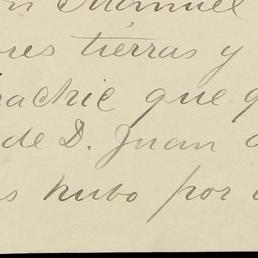 on Manuel
ores tierras y
rachie que q
de D. Juan
s hubo por